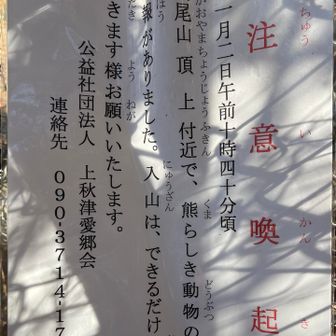 注意喚起
ちゅう い かん き
一月二日午前十時四十分頃
尾山頂上付近で、熊らしき動物の
がおやまちょうじょうふきん くま どうぶつ
がありました。入山は、できるだけ
にゅうざん
きます様お願いいたします。
よう ねが
公益社団法人 上秋津愛郷会
連絡先 090-3714-17